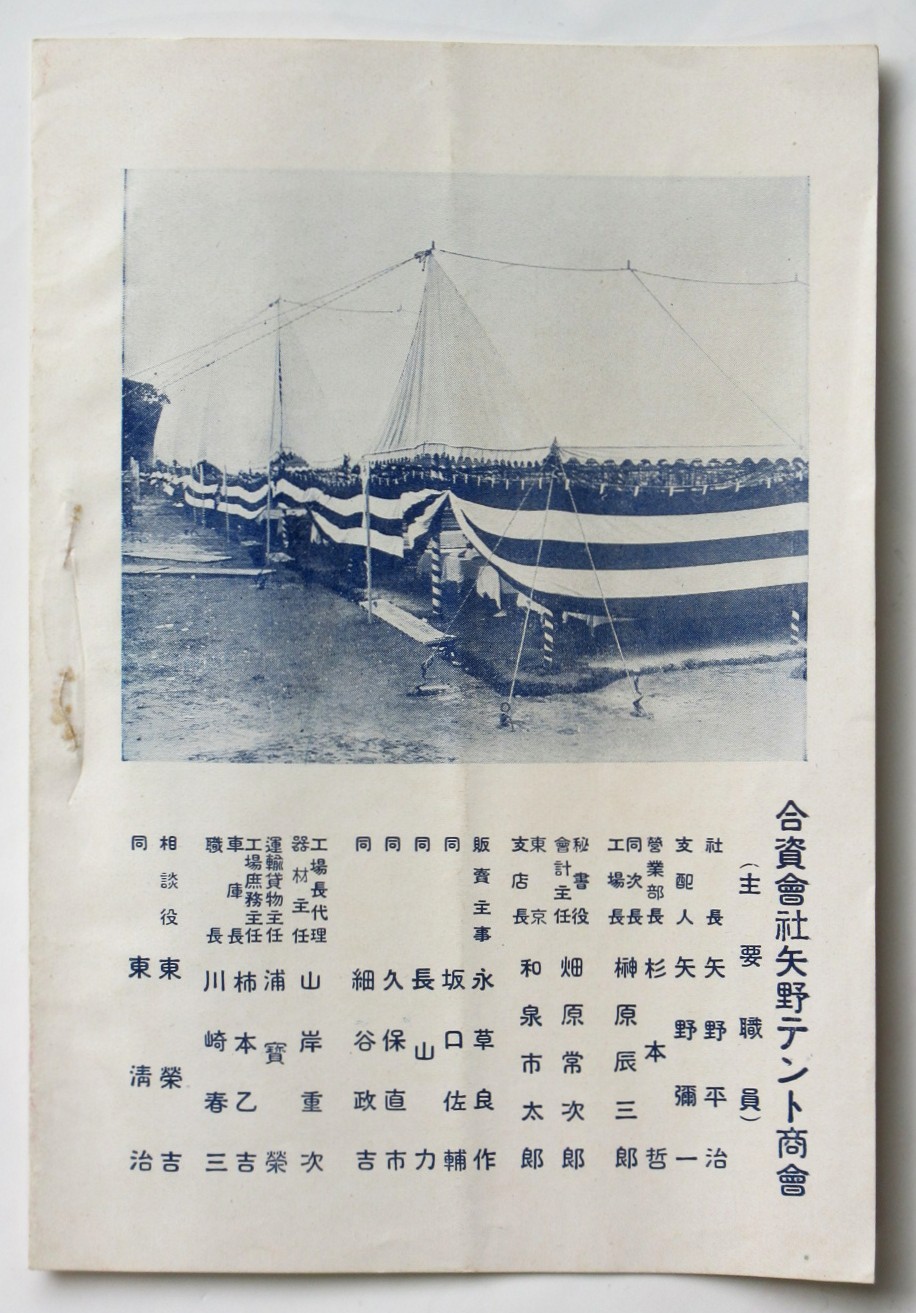 合資會社矢野テント商會
（主要職員）
社長 矢野平治
支配人 矢野彌一
營業部長 杉本哲
同次長
工場長 榊原辰三郎
秘書役
會計主任 畑原常次郎
東京
支店長 和泉市太郎
販賣主事 永草良作
同 坂口佐輔
同 長山力
同 久保直市
同 細谷政吉
工場長代理
器材主任 山岸重次
運輸貨物主任 浦寶榮
工場庶務主任 柿本乙吉
車庫長
職長 川崎春三
相談役 東榮吉
同 東淸治